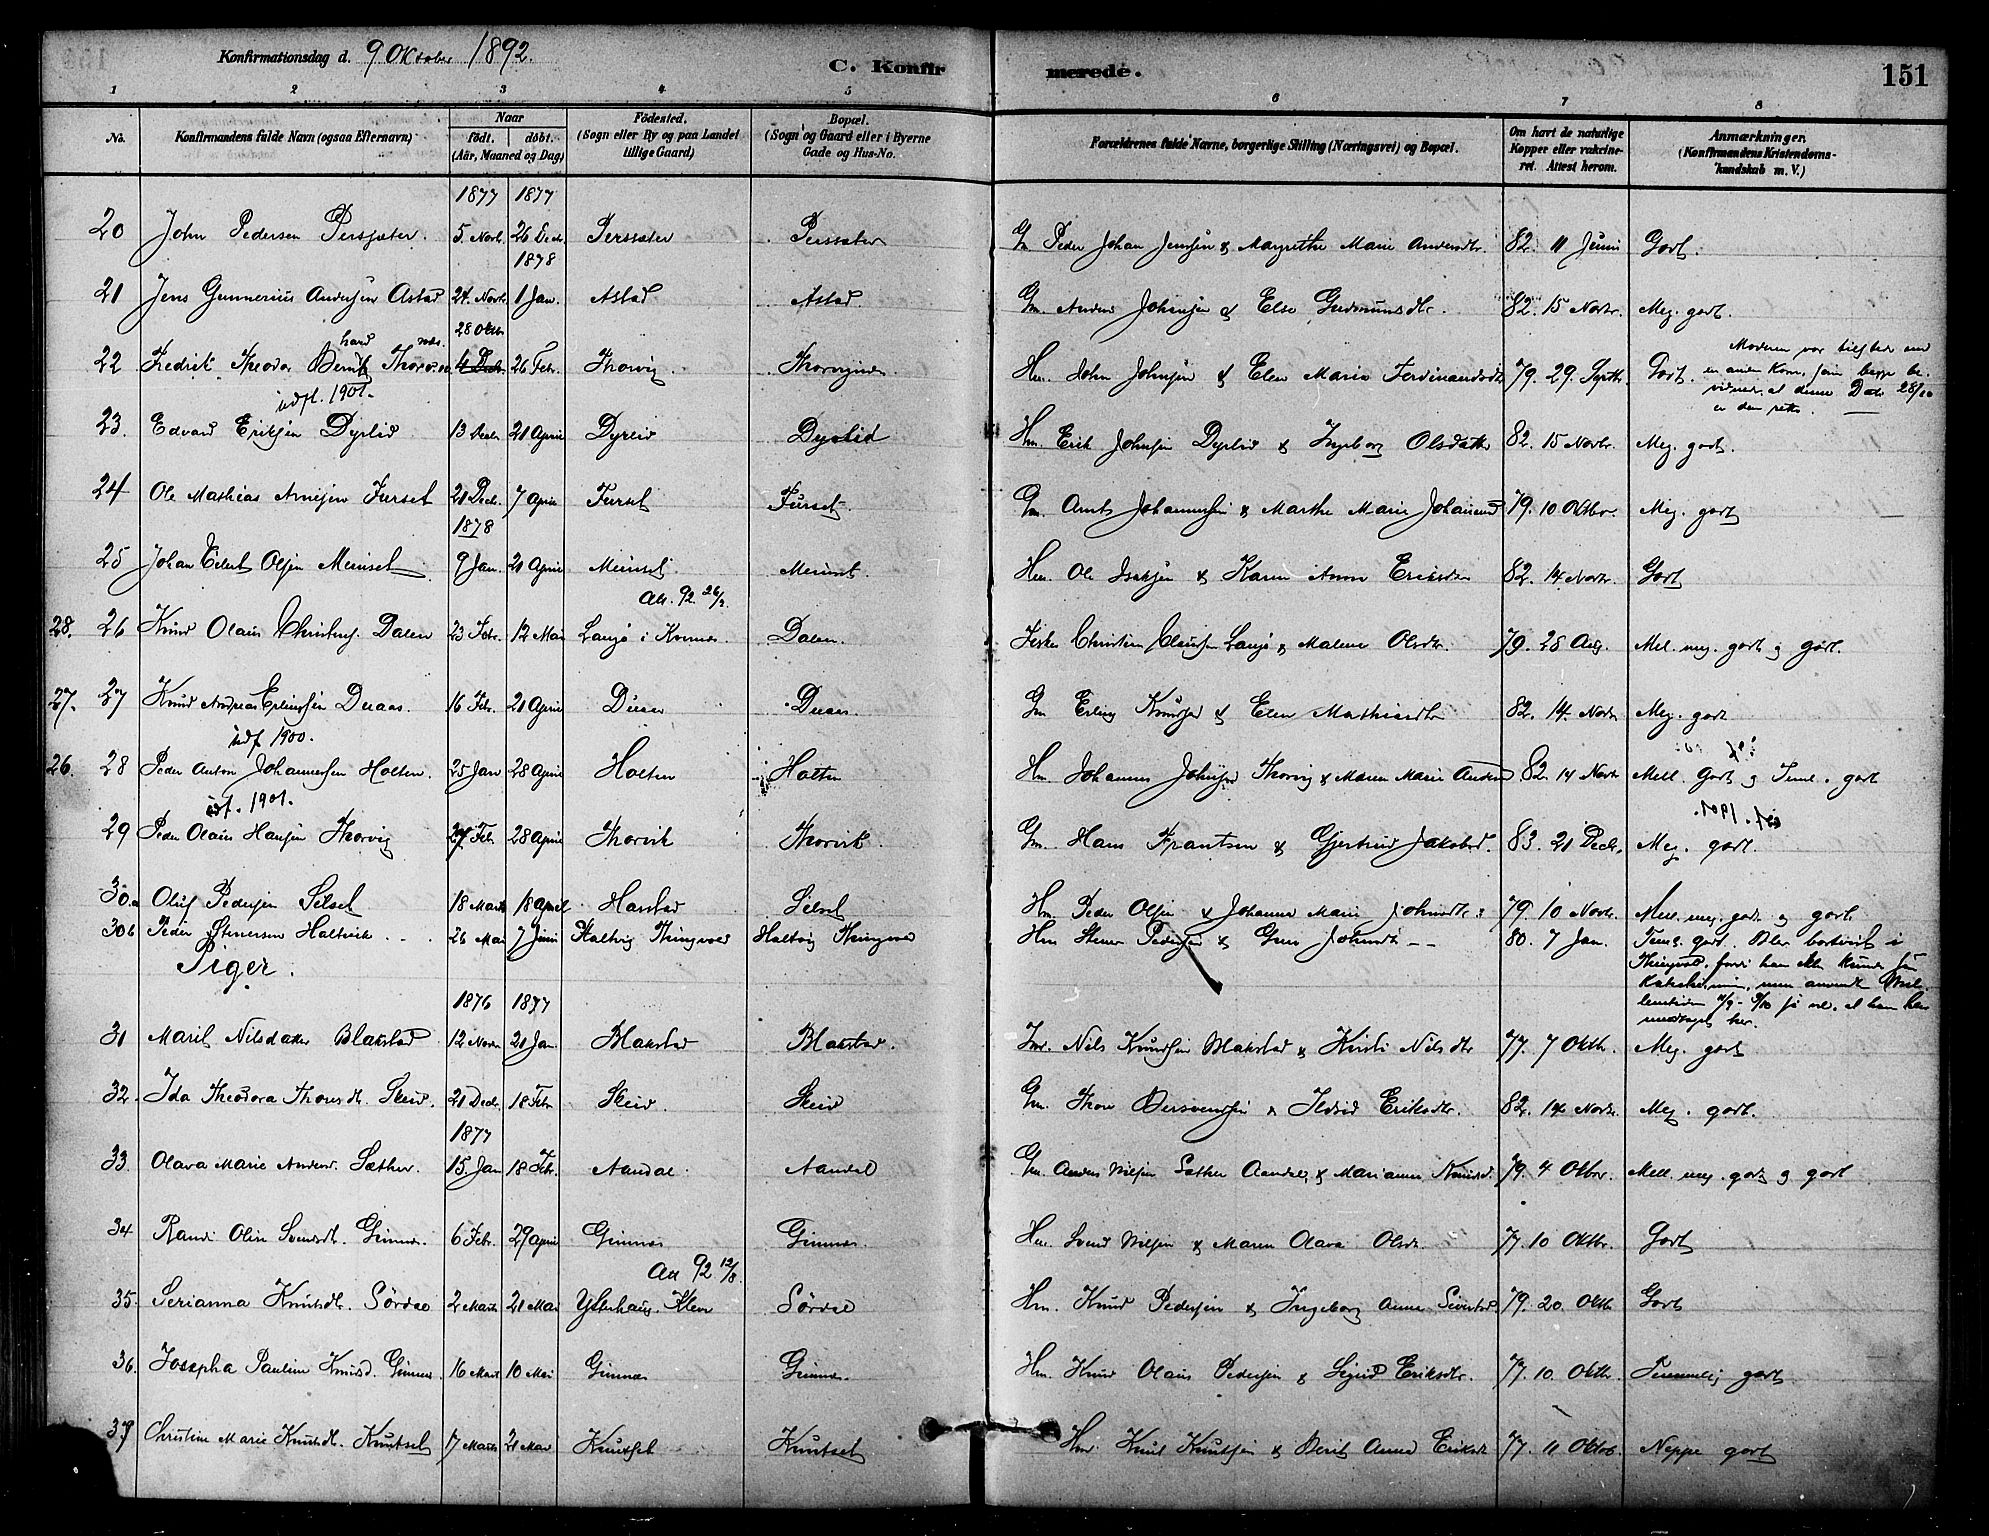 Konfirmationsdag d. 9 Oktober 1892.
C. Konfirmerede.
151
1 2 3 4 5 6 7 8
No. Konfirmandens fulde Navn (ogsaa Efternavn) Naar født. døbt. (Aar, Maaned og Dag) Fødested. (Sogn eller By og paa Landet tillige Gaard) Bopæl. (Sogn og Gaard eller i Byerne Gade og Hus-No. Forældrenes fulde Navne, borgerlige Stilling (Næringsvei) og Bopæl. Om havt de naturlige Kopper eller vakcineret. Attest herom. Anmærkninger. (Konfirmandens Kristendomskundskab m. V.)
1877 1877
20 John Pedersen Perssæter. 5. Novb. 26 Dec. Perssæter Perssæter Gm Peder Johan Jensen & Margrethe Marie Andersdtr. 82. 11 Juni Godt.
1878
21 Jens Gunnerius Andersen Astad 24. Novb. 1 Jan. Astad Astad Gm. Anders Johnsen & Else Gudmundsdtr. 82. 15 Novbr. Meg. godt.
28 Oktbr
22 Fredrik Theodor Bernt Thorvig 4 Decbr. 26 Febr. Thorvig Hm. John Johnsen & Elen Marie Ferdinandsdtr 79. 29. Septb. Godt.
Moderen var tilstede med en anden Kone, som begge bevidner, at denne Dato 28/10 er den rette.
udfl. 1901.
23. Edvard Eriksen Dyrlid 13 Decbr 21 April Dyrlid Dyrlid Hm. Erik Johnsen Dyrlid & Ingeborg Olsdatter 82. 15 Novbr. Meg. godt.
24 Ole Mathias Arntsen Furset 21 Decb. 7 April Furset Furset. Gm. Arnt Johannessen & Marthe Marie Johansd 79. 10 Oktbr. Meg. godt
1878
25 Johan Edert Olsen Meinset 9 Jan. 21 April Meinset. Meinset. Hm. Ole Isaksen & Karen Anne Eriksdtr 82. 14 Novbr. Godt
Att. 92. 26/2.
28. 26 Knud Olaus Christens. Dalen 23 Febr. 12 Mai Langø i Kvernes. Dalen. Fisker Christian Clausen Langø & Malene Olsdtr. 79. 28 Aug. Mel. meg. godt og godt.
27. 27 Knud Andreas Erlingsen Duaas. 16 Febr. 21 April Duaas Duaas. Gm Erling Knudsen & Elen Mathiasdtr 82. 14. Novbr Meg. godt
udf 1900.
26. 28 Peder Anton Johannessen Holten. 25 Jan 28 April Holten Holten Hm. Johannes Johnsen Thorvig & Maren Marie Andersd 82. 14 Novbr. Mell. Godt og Teml. godt
udf. 1901.
29 Peder Olaus Hansen Thorvig 27 Febr. 28 April Thorvik Thorvik. Gm. Hans Frantsen & Gjertrud Jakobsd. 83. 21 Decb. Meg. godt.
30a Oluf Pedersen Silset 18 Marts 18 April Harstad Silset Hm. Peder Olsen & Johanne Marie Johnsdtr. 79. 10 Novbr. Mell. meg. godt og godt.
30b Peder Stenersen Haltvik 26 Mai 7 Juni Haltvig Thingvold Haltvig Thingvold Hm Stener Pedersen & Guru Johnsdtr 80. 7 Jan. Teml. godt. Blev bortvist i Thingvold, fordi han ikke kunde sin Katekisme, men anvendt Mellemtiden 11/9-9/10 så vel, at han kan modtages her.
Piger.
1876 1877
31 Marit Nilsdatter Blakstad 12 Novbr 21 Jan Blakstad Blakstad. Inr. Nils Knudsen Blakstad & Kristi Nilsdtr 77. 7 Oktbr. Meg. godt
32. Ida Theodora Thoresdtr. Skeid. 21 Decb. 18 Febr. Skeid. Skeid Gm. Thore Bersvendsen & Ildrid Eriksdtr. 82. 14 Novbr. Meg. godt.
1877
33. Olava Marie Andersd. Sæther. 15. Jan 18 Febr. Aandal Aandal Gm. Anders Nilsen Sæther Aandal & Marianne Knudsd. 79. 4 Oktbr. Mell. meg. godt og godt
34 Randi Oline Svendsdtr. Gimnes. 6 Febr. 29 April Gimnes Gimnes. Hm. Svend Nilsen & Maren Olava Olsdtr. 77. 10 Oktbr. Godt
Att 92 12/8.
35. Serianna Knudsdtr. Sørdal 2 Marts 21 Mai Ysterhaug Kleve Sørdal Hm. Knud Pedersen & Ingeborg Anne Sivertsd. 79. 20. Oktb Godt
36. Josepha Pauline Knudsd. Gimnes 16 Marts 10 Mai Gimnes Gimnes. Hm. Knud Olaus Pedersen & Sigrid Eriksdtr. 77. 10. Oktbr. Temmelig godt
37 Christine Marie Knudsdtr. Knutset 7 Marts 21 Mai Knutset Knutset Hm. Knut Knutsen & Berit Anne Eriksdtr 77. 11 Oktob. Neppe godt